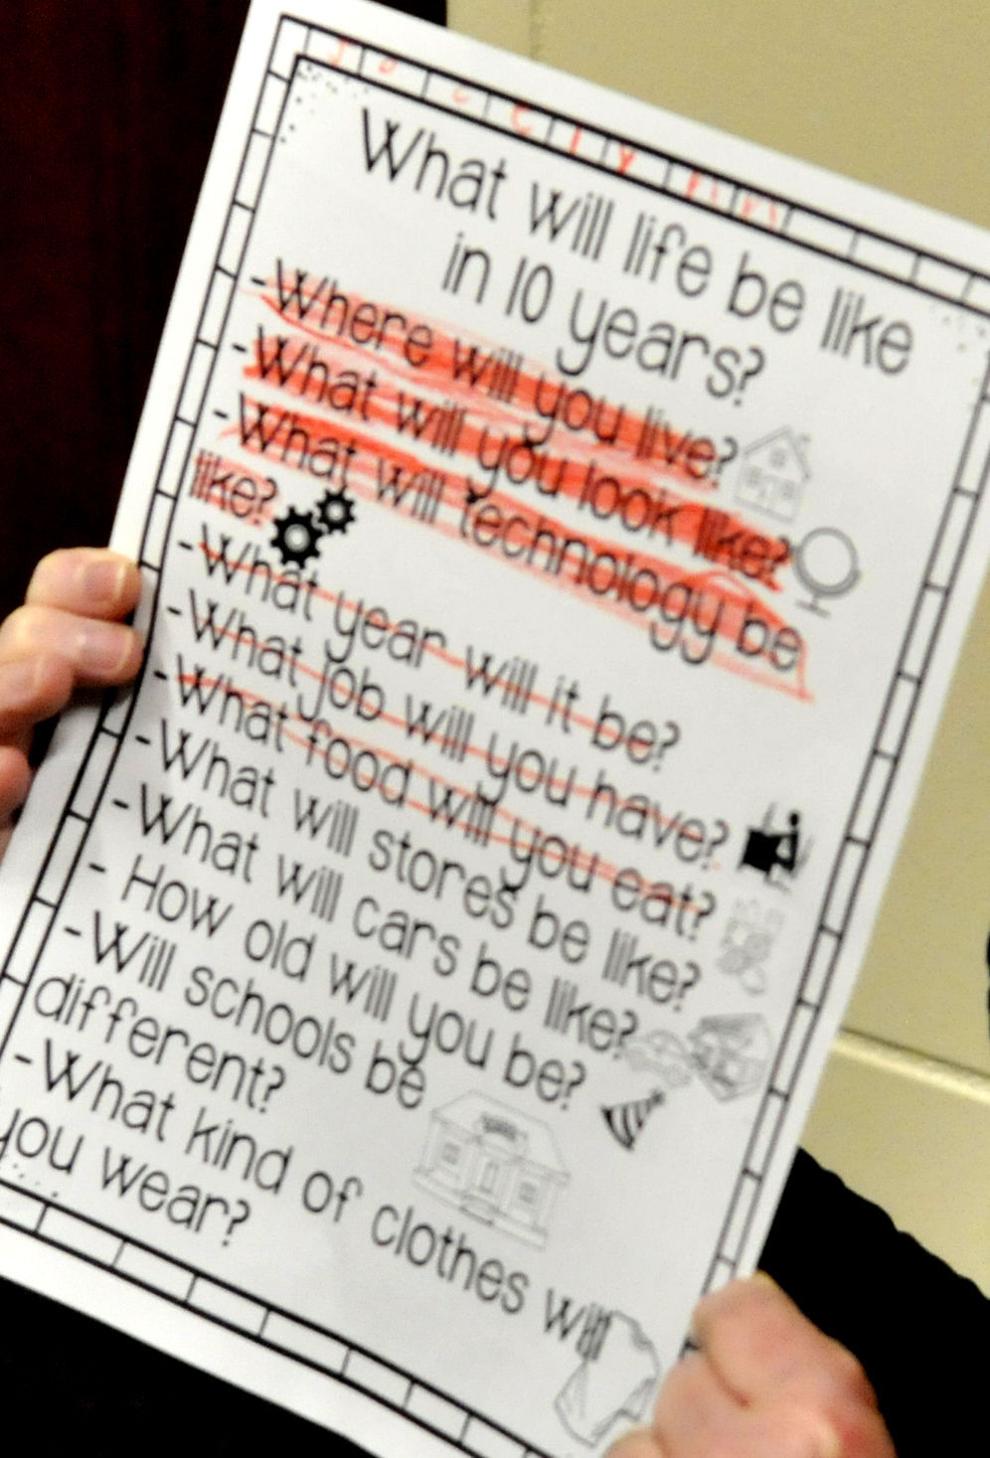 Jocelynn
What will life be like
in 10 years?
-Where will you live?
-What will you look like?
-What will technology be
like?
-What year will it be?
-What job will you have?
-What food will you eat?
-What will stores be like?
-What will cars be like?
- How old will you be?
-Will schools be
different?
-What kind of clothes will
you wear?